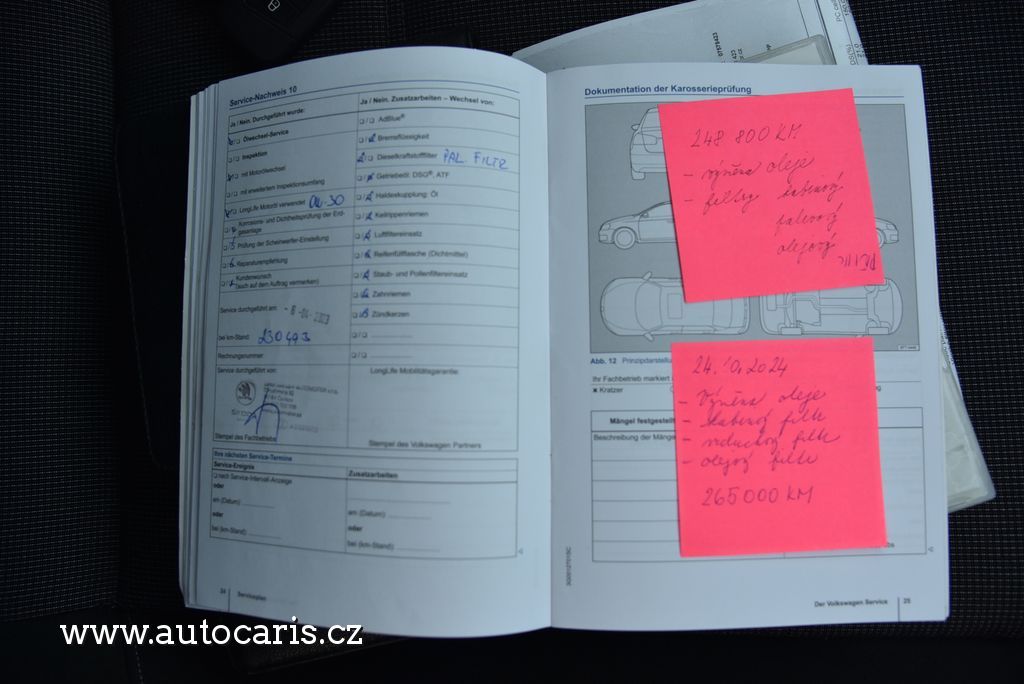 Service-Nachweis 10
Ja / Nein. Durchgeführt wurde:
Ölwechsel-Service
Inspektion
mit Motorölwechsel
mit erweitertem Inspektionsumfang
LongLife Motoröl verwendet 0W-30
Korrosions- und Dichtheitsprüfung der Erdgasanlage
Prüfung der Scheinwerfer-Einstellung
Reparaturempfehlung
Kundenwunsch
(auch auf dem Auftrag vermerken)
Service durchgeführt am:
bei km-Stand: 230493
Rechnungsnummer:
Service durchgeführt von:
Stempel des Fachbetriebs
Ja / Nein. Zusatzarbeiten – Wechsel von:
AdBlue®
Bremsflüssigkeit
Dieselkraftstofffilter PAL. FILTR
Getriebeöl: DSG®, ATF
Haldexkupplung: Öl
Keilrippenriemen
Luftfiltereinsatz
Reifenfüllflasche (Dichtmittel)
Staub- und Pollenfiltereinsatz
Zahnriemen
Zündkerzen
LongLife Mobilitätsgarantie
Stempel des Volkswagen Partners
Ihre nächsten Service-Termine
Service-Ereignis
nach Service-Intervall-Anzeige
oder
am (Datum)
oder
bei (km-Stand)
Zusatzarbeiten
am (Datum)
oder
bei (km-Stand)
34 Serviceplan
Dokumentation der Karosserieprüfung
248 800 KM
- výměna oleje
- filtry kabinový
palivový
olejový
Abb. 12 Prinzipdarstellu
Ihr Fachbetrieb markiert
Kratzer
Mängel festgestell
Beschreibung der Mänge
24.10.2024
- Výměna oleje
- kabinový filtr
- vzduchový filtr
- olejový filtr
265000 KM
Der Volkswagen Service 35
www.autocaris.cz